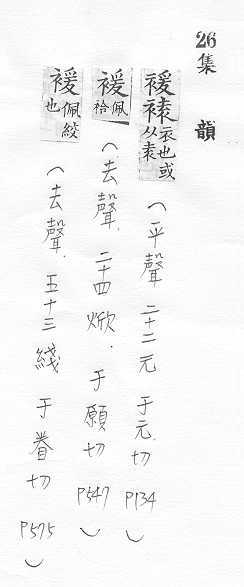 26 集韻
褑䙇衣也或从袁（平聲 二十二元 于元切 P134）
褑佩衿（去聲 二十四焮 于願切 P547）
褑佩絞也（去聲 五十三綫 于眷切 P575）